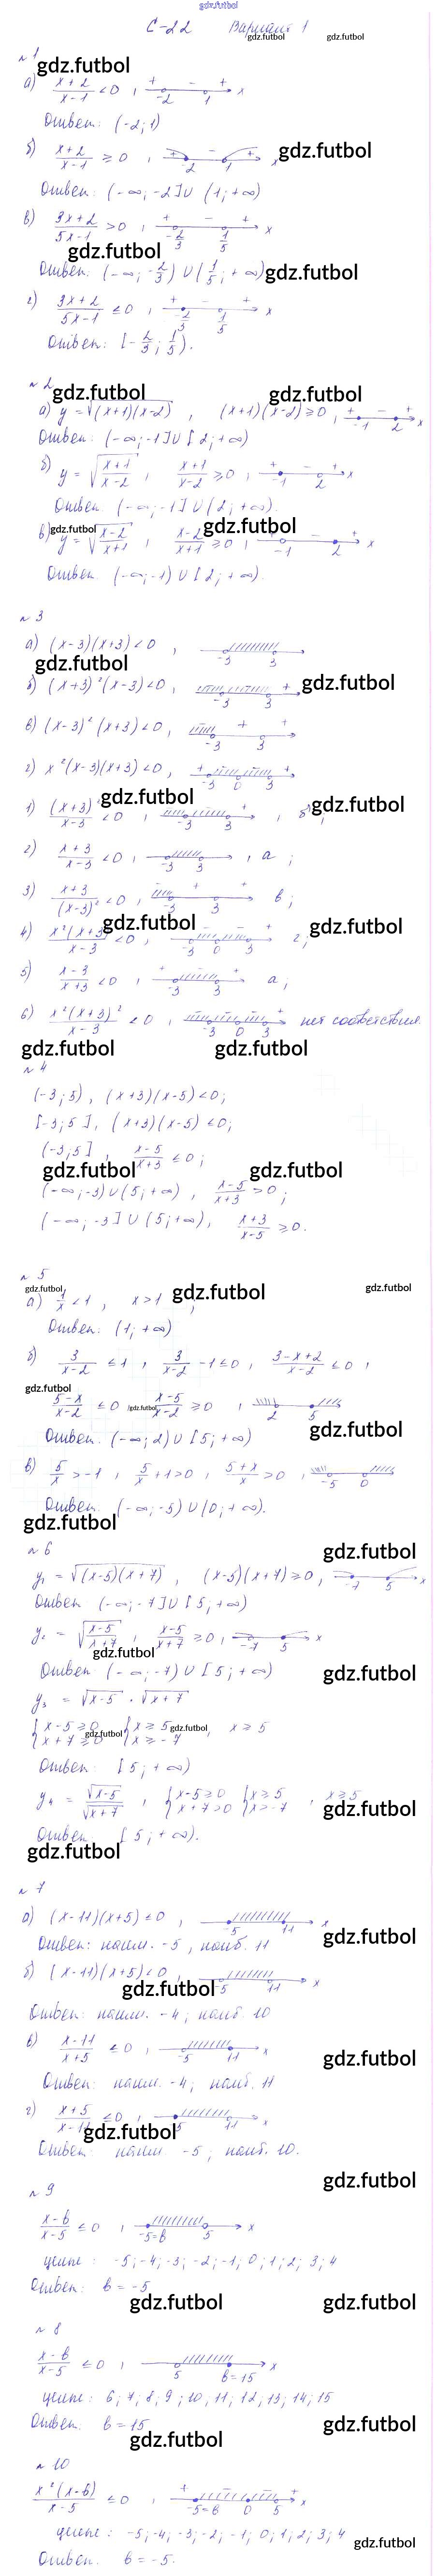 gdz.futbol
С-22 Вариант 1
gdz.futbol gdz.futbol
№1 gdz.futbol
а) (x+2)/(x-1) < 0, + - + -2 1 x
Ответ: (-2; 1)
б) (x+2)/(x-1) ≥ 0, + - + -2 1 x gdz.futbol
Ответ: (-∞; -2] ∪ (1; +∞)
в) (3x+2)/(5x-1) > 0, + - + -2/3 1/5 x
gdz.futbol
Ответ: (-∞; -2/3) ∪ (1/5; +∞) gdz.futbol
г) (3x+2)/(5x-1) ≤ 0, + - + -2/3 1/5 x
Ответ: [-2/3; 1/5).
№2 gdz.futbol gdz.futbol
а) y = √((x+1)(x-2)), (x+1)(x-2) ≥ 0, + - + -1 2 x
Ответ: (-∞; -1] ∪ [2; +∞)
б) y = √((x+1)/(x-2)), (x+1)/(x-2) ≥ 0, + - + -1 2 x
Ответ: (-∞; -1] ∪ (2; +∞).
gdz.futbol gdz.futbol
в) y = √((x-2)/(x+1)), (x-2)/(x+1) ≥ 0, + - + -1 2 x
Ответ: (-∞; -1) ∪ [2; +∞).
№3
а) (x-3)(x+3) < 0, -3 3
gdz.futbol
б) (x+3)²(x-3) < 0, - - + -3 3 gdz.futbol
в) (x-3)²(x+3) < 0, - + + -3 3
г) x²(x-3)(x+3) < 0, + - - + -3 0 3
gdz.futbol gdz.futbol
1) (x+3)²/(x-3) < 0, - - + -3 3, б;
2) (x+3)/(x-3) < 0, + - + -3 3, а;
3) (x+3)/(x-3)² < 0, - + + -3 3 в;
gdz.futbol gdz.futbol
4) x²(x+3)/(x-3) < 0, + - - + -3 0 3 г;
5) (x-3)/(x+3) < 0, + - + -3 3 а;
6) x²(x+3)²/(x-3) < 0, - - - + -3 0 3 нет соответствия.
gdz.futbol gdz.futbol
№4
(-3; 5), (x+3)(x-5) < 0;
[-3; 5], (x+3)(x-5) ≤ 0;
(-3; 5], (x-5)/(x+3) ≤ 0;
gdz.futbol gdz.futbol
(-∞; -3) ∪ (5; +∞), (x-5)/(x+3) > 0;
(-∞; -3] ∪ (5; +∞), (x+3)/(x-5) ≥ 0.
№5
gdz.futbol gdz.futbol gdz.futbol
а) 1/x < 1, x > 1,
Ответ: (1; +∞)
б) 3/(x-2) ≤ 1, 3/(x-2) - 1 ≤ 0, (3-x+2)/(x-2) ≤ 0,
gdz.futbol
(5-x)/(x-2) ≤ 0 /gdz.futbol (x-5)/(x-2) ≥ 0, 2 5
gdz.futbol
Ответ: (-∞; 2) ∪ [5; +∞)
в) 5/x > -1, 5/x + 1 > 0, (5+x)/x > 0, -5 0
Ответ: (-∞; -5) ∪ (0; +∞).
gdz.futbol
№6 gdz.futbol
y₁ = √((x-5)(x+7)), (x-5)(x+7) ≥ 0, -7 5 x
Ответ (-∞; -7] ∪ [5; +∞)
y₂ = √((x-5)/(x+7)), (x-5)/(x+7) ≥ 0, -7 5 x
gdz.futbol
Ответ (-∞; -7) ∪ [5; +∞) gdz.futbol
y₃ = √(x-5) · √(x+7)
{x-5 ≥ 0 {x ≥ 5 gdz.futbol, x ≥ 5
{x+7 ≥ 0 gdz.futbol {x ≥ -7
Ответ: [5; +∞)
y₄ = √(x-5)/√(x+7), {x-5 ≥ 0 {x ≥ 5, x ≥ 5
{x+7 > 0 {x > -7 gdz.futbol
Ответ [5; +∞).
gdz.futbol
№7
а) (x-11)(x+5) ≤ 0, -5 11 x
gdz.futbol
Ответ: наим. -5, наиб. 11
б) (x-11)(x+5) < 0, -5 11 x
gdz.futbol
Ответ: наим. -4; наиб. 10
в) (x-11)/(x+5) ≤ 0, -5 11 x
gdz.futbol
Ответ: наим. -4; наиб. 11
г) (x+5)/(x-11) ≤ 0, -5 11 x
gdz.futbol
Ответ: наим -5; наиб. 10.
gdz.futbol
№9
(x-b)/(x-5) ≤ 0, -5=b 5 x
целые: -5; -4; -3; -2; -1; 0; 1; 2; 3; 4
Ответ: b = -5
gdz.futbol gdz.futbol
№8
(x-b)/(x-5) ≤ 0, 5 b=15 x
целые: 6; 7; 8; 9; 10; 11; 12; 13; 14; 15
Ответ: b = 15 gdz.futbol
gdz.futbol
№10
x²(x-b)/(x-5) ≤ 0, + - - + -5=b 0 5 x
целые: -5; -4; -3; -2; -1; 0; 1; 2; 3; 4 gdz.futbol
Ответ. b = -5.